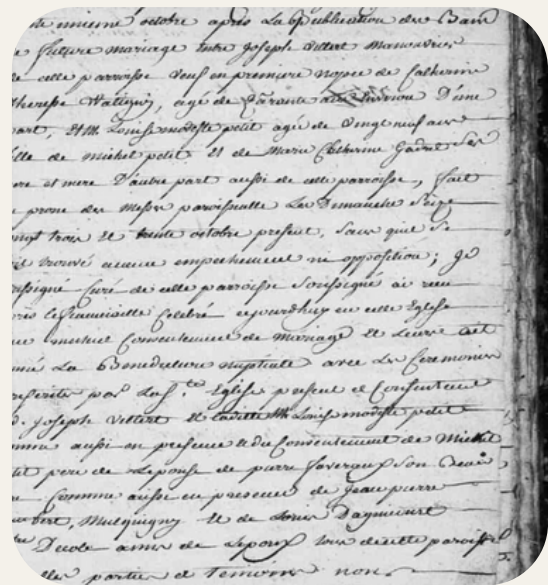 octobre après La publication des Bans
future mariage Entre Joseph Vittert manouvrier
de cette parroisse veuf en premiere nopce de Catherine
therese Watigny, agé de quarante ans environ D'une
part, Et M. Louise modeste petit agée de vingt neuf ans
fille de michel petit Et de Marie Catherine Ses
pere et mere D'autre part aussi de cette parroisse, fait
prone des Messes paroissialle Les Dimanche Seize
vingt trois Et trente octobre present, Sans quil Se
soit trouvé aucun empechement ne opposition; Je
soussigné Curé de cette parroisse soussigné ai recu
apres Les fiançaille Celebré cejourdhuy en cette Eglise
mutuel Consentement de Mariage Et Leurs ait
donné La Benediction nuptiale avec Les Ceremonies
prescrites par La Ste Eglise present et Consentent
Joseph Vittert Et laditte M. Louise modeste petit
comme aussi en presence Et du Consentement de Michel
petit pere de Lepouse de pierre Son
Comme aussi en presence de Jean pierre
Et de Louis
Decole amis de Lepoux tous de cette paroisse
parties et temoins nous